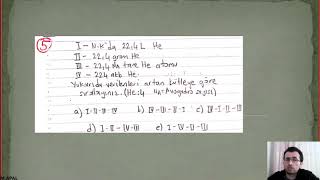 5
I — N.K'da 22,4 L He
II — 22,4 gram He
III — 22,4 NA tane He atomu
IV — 224 akb He
Yukarıda verilenleri artan kütleye göre
sıralayınız. (He:4 NA: Avogadro sayısı)
a) I-II-III-IV b) IV-III-II-I c) IV-I-II-III
d) I-II-IV-III e) I-IV-II-III